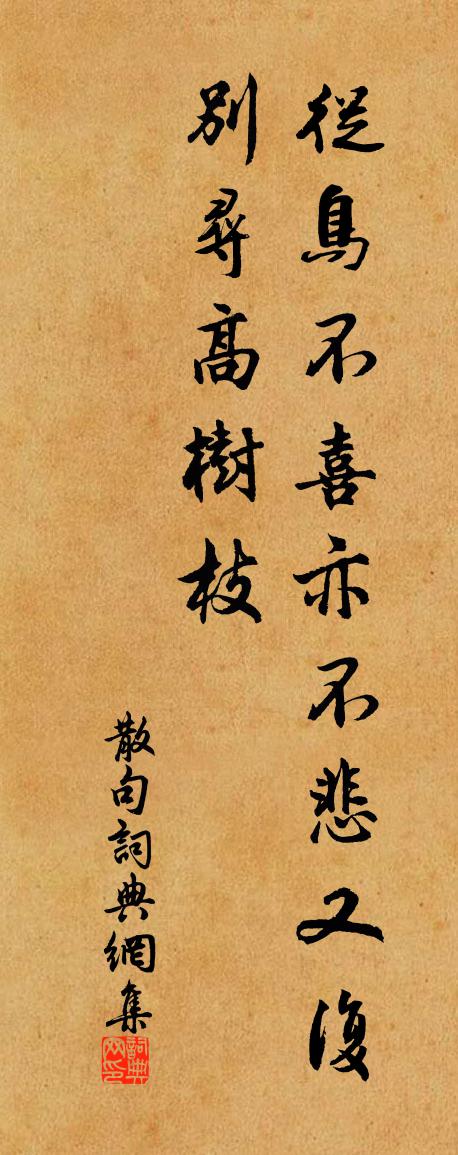 從鳥不喜亦不悲又復
別尋高樹枝
散句詞典網集
詞典
网印